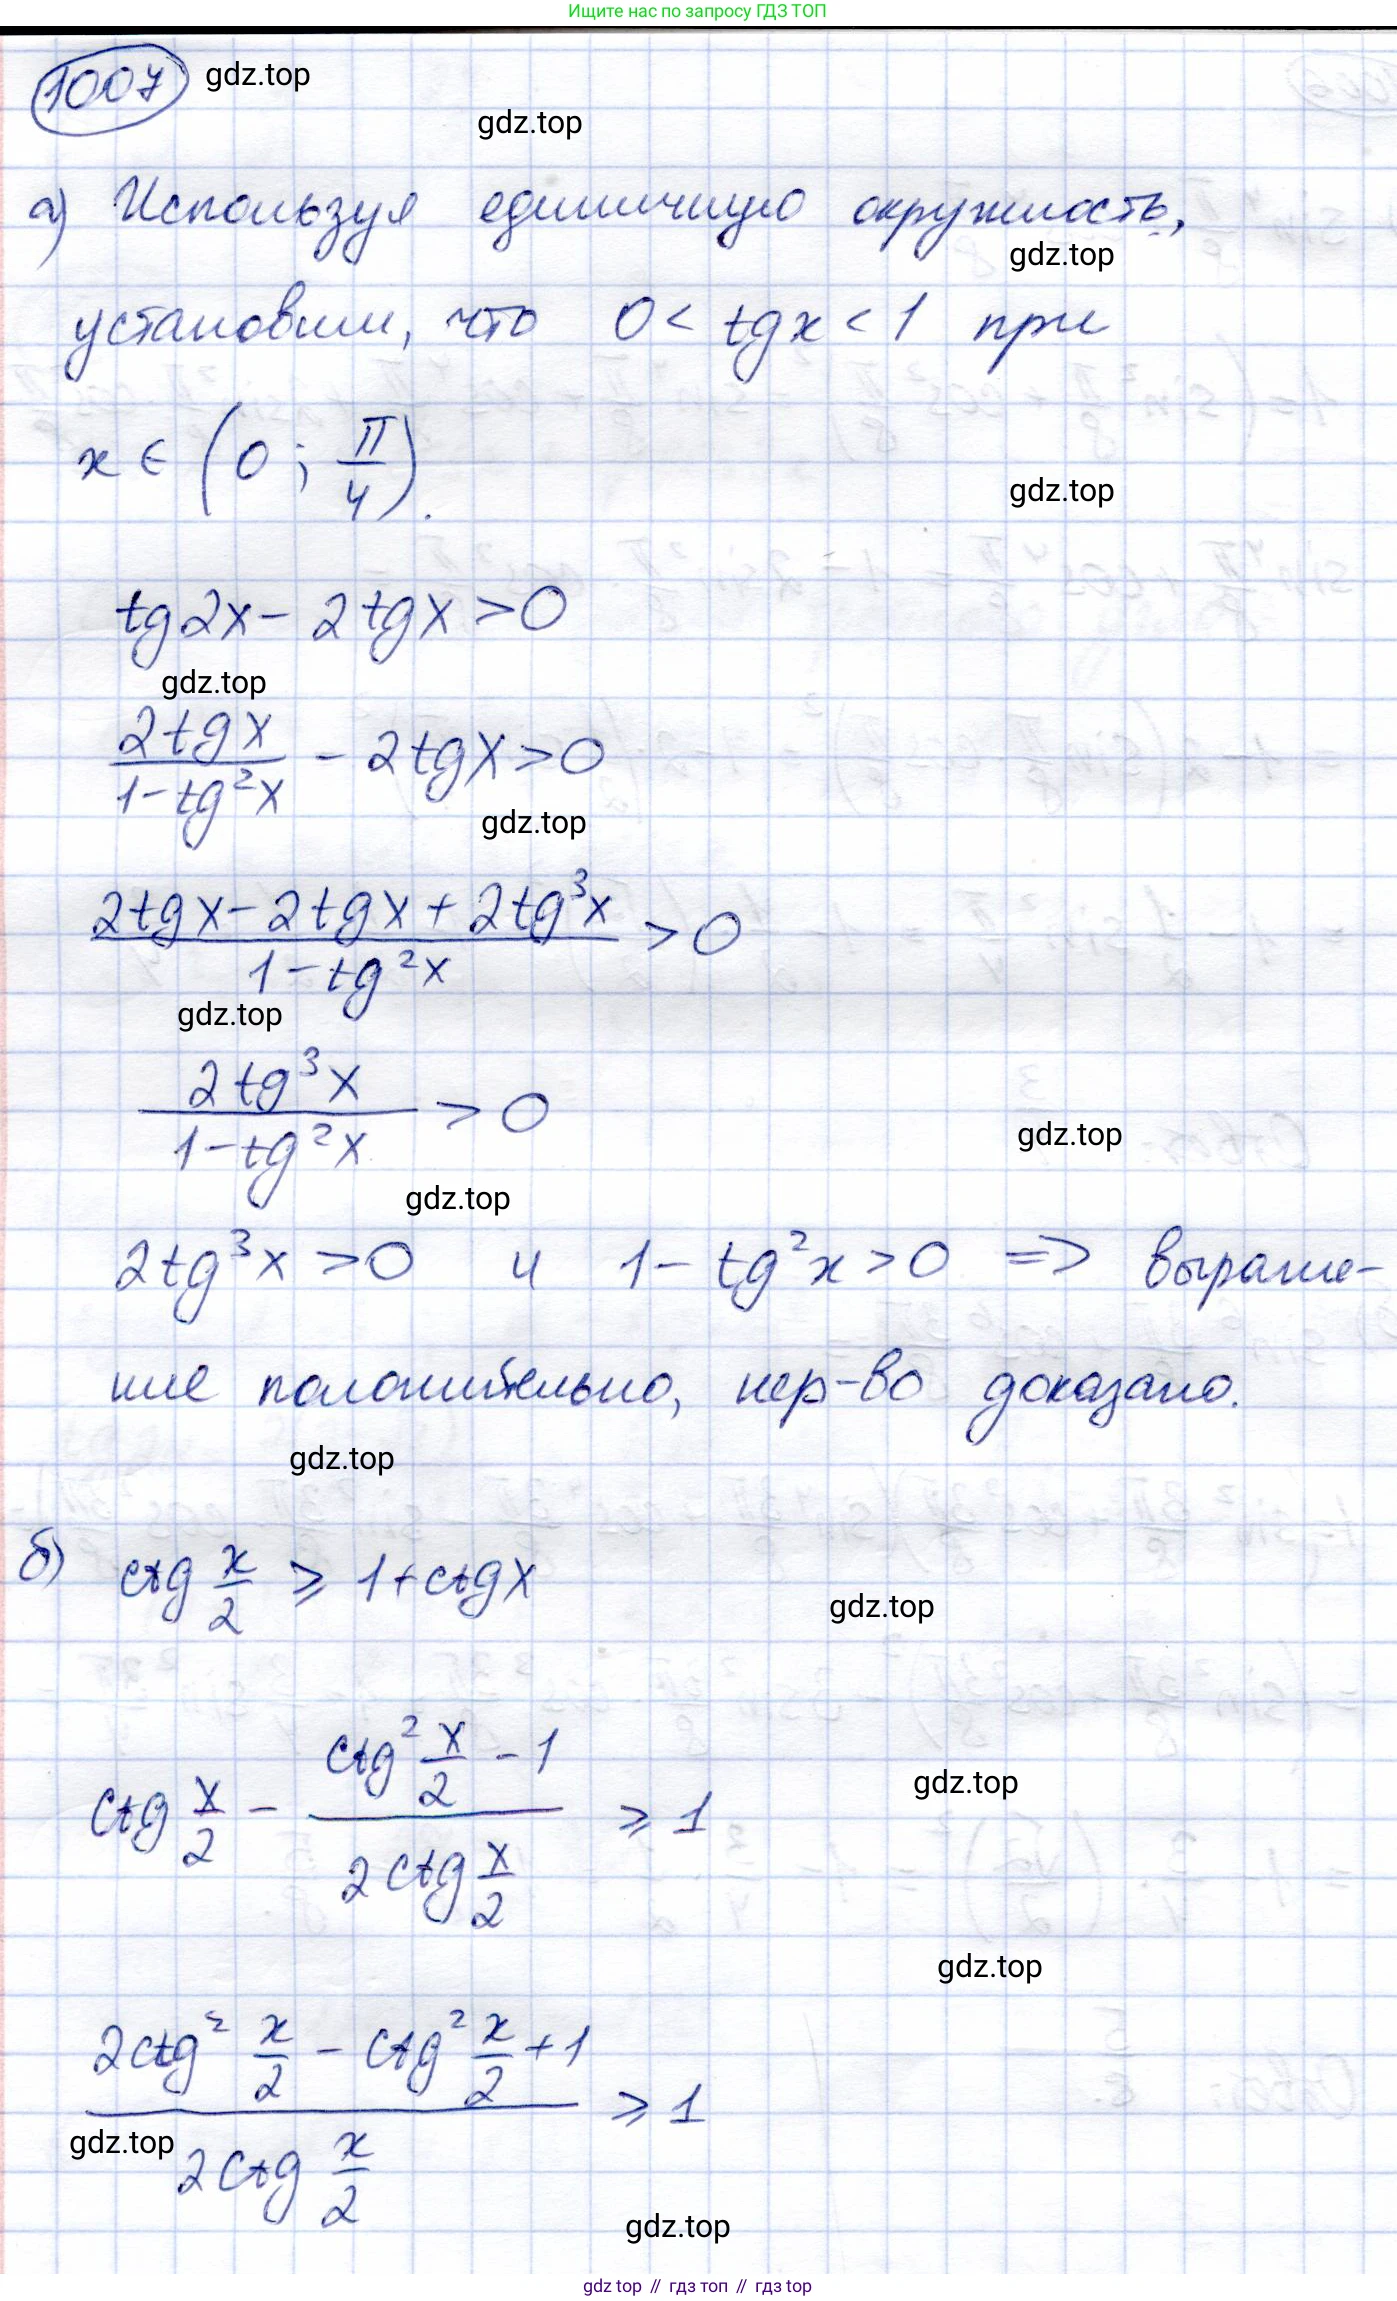 Ищите нас по запросу ГДЗ ТОП
1007 gdz.top
gdz.top
а) Используя единичную окружность,
gdz.top
установим, что 0 < tgx < 1 при
x ∈ (0; π/4).
gdz.top
tg2x - 2tgx > 0
gdz.top
2tgx / (1 - tg²x) - 2tgx > 0
gdz.top
(2tgx - 2tgx + 2tg³x) / (1 - tg²x) > 0
gdz.top
2tg³x / (1 - tg²x) > 0
gdz.top
gdz.top
2tg³x > 0 и 1 - tg²x > 0 => выраже-
ние положительно, нер-во доказано.
gdz.top
б) ctg x/2 ⩾ 1 + ctgx
gdz.top
ctg x/2 - (ctg² x/2 - 1) / (2ctg x/2) ⩾ 1
gdz.top
gdz.top
(2ctg² x/2 - ctg² x/2 + 1) / (2ctg x/2) ⩾ 1
gdz.top
gdz.top
gdz top // гдз топ // гдз top